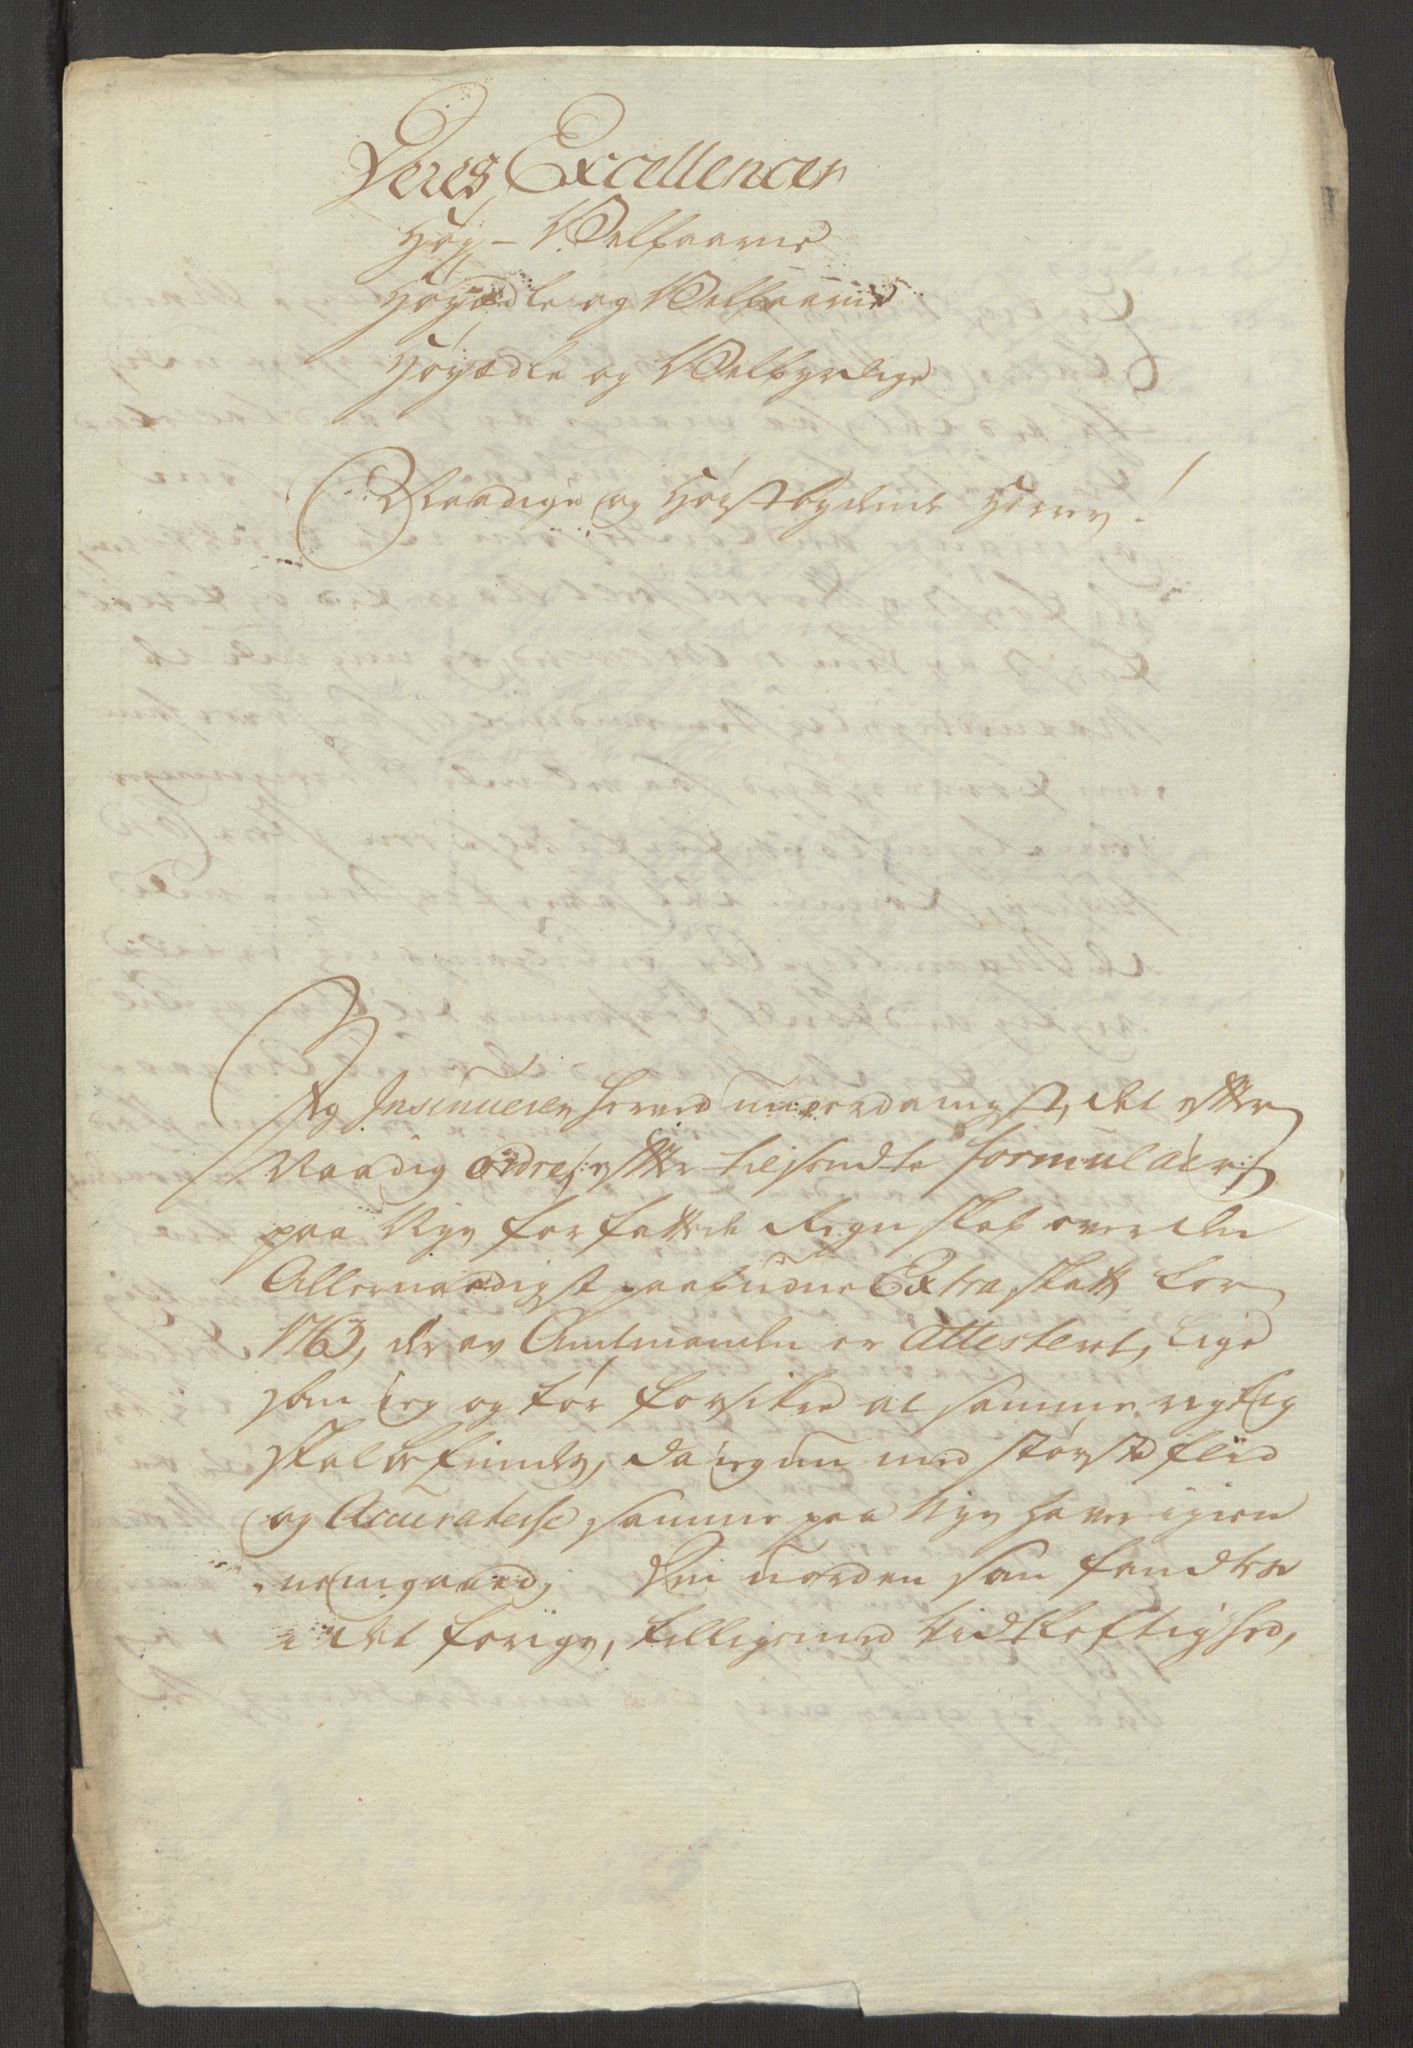 Deres Excellencer
Høy-Velbaarne
Høyædle og Velbaarne
Høyædle og Velbyrdige
Naadige og Høystbydende Herrer!
Jeg Insinuerer herved underdanigst, det efter
Naadig ordre /: efter tilsendte formulaer :/
paa Nye forfattede Regnskab over den
Allernaadigst paabudne Extra skatt for
1763, der av Amtmanden er Attesteret, lige
som ieg og tør forsikre at samme rigtig
skal befindes, da ieg nu med største flid
og Accuratesse samme paa Nye haver igien-
nemgaaed, den uorden som fandtes
i det forige, tilligemed Vidtløftighed,